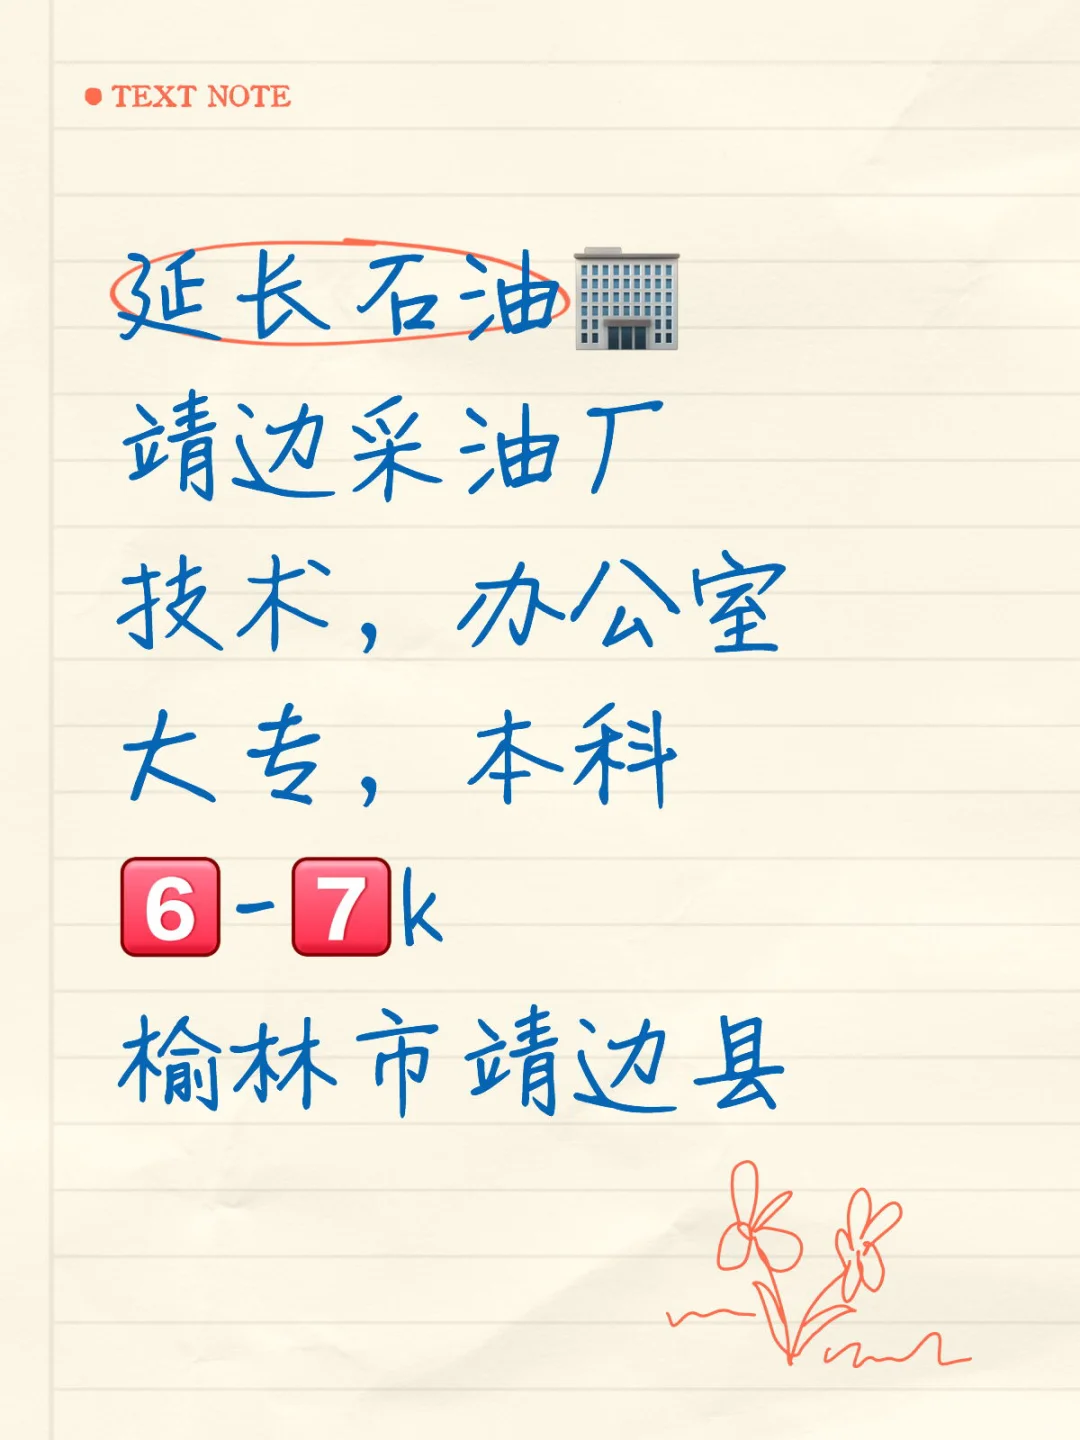 TEXT NOTE
延长石油🏢
靖边采油厂
技术，办公室
大专，本科
6-7k
榆林市靖边县